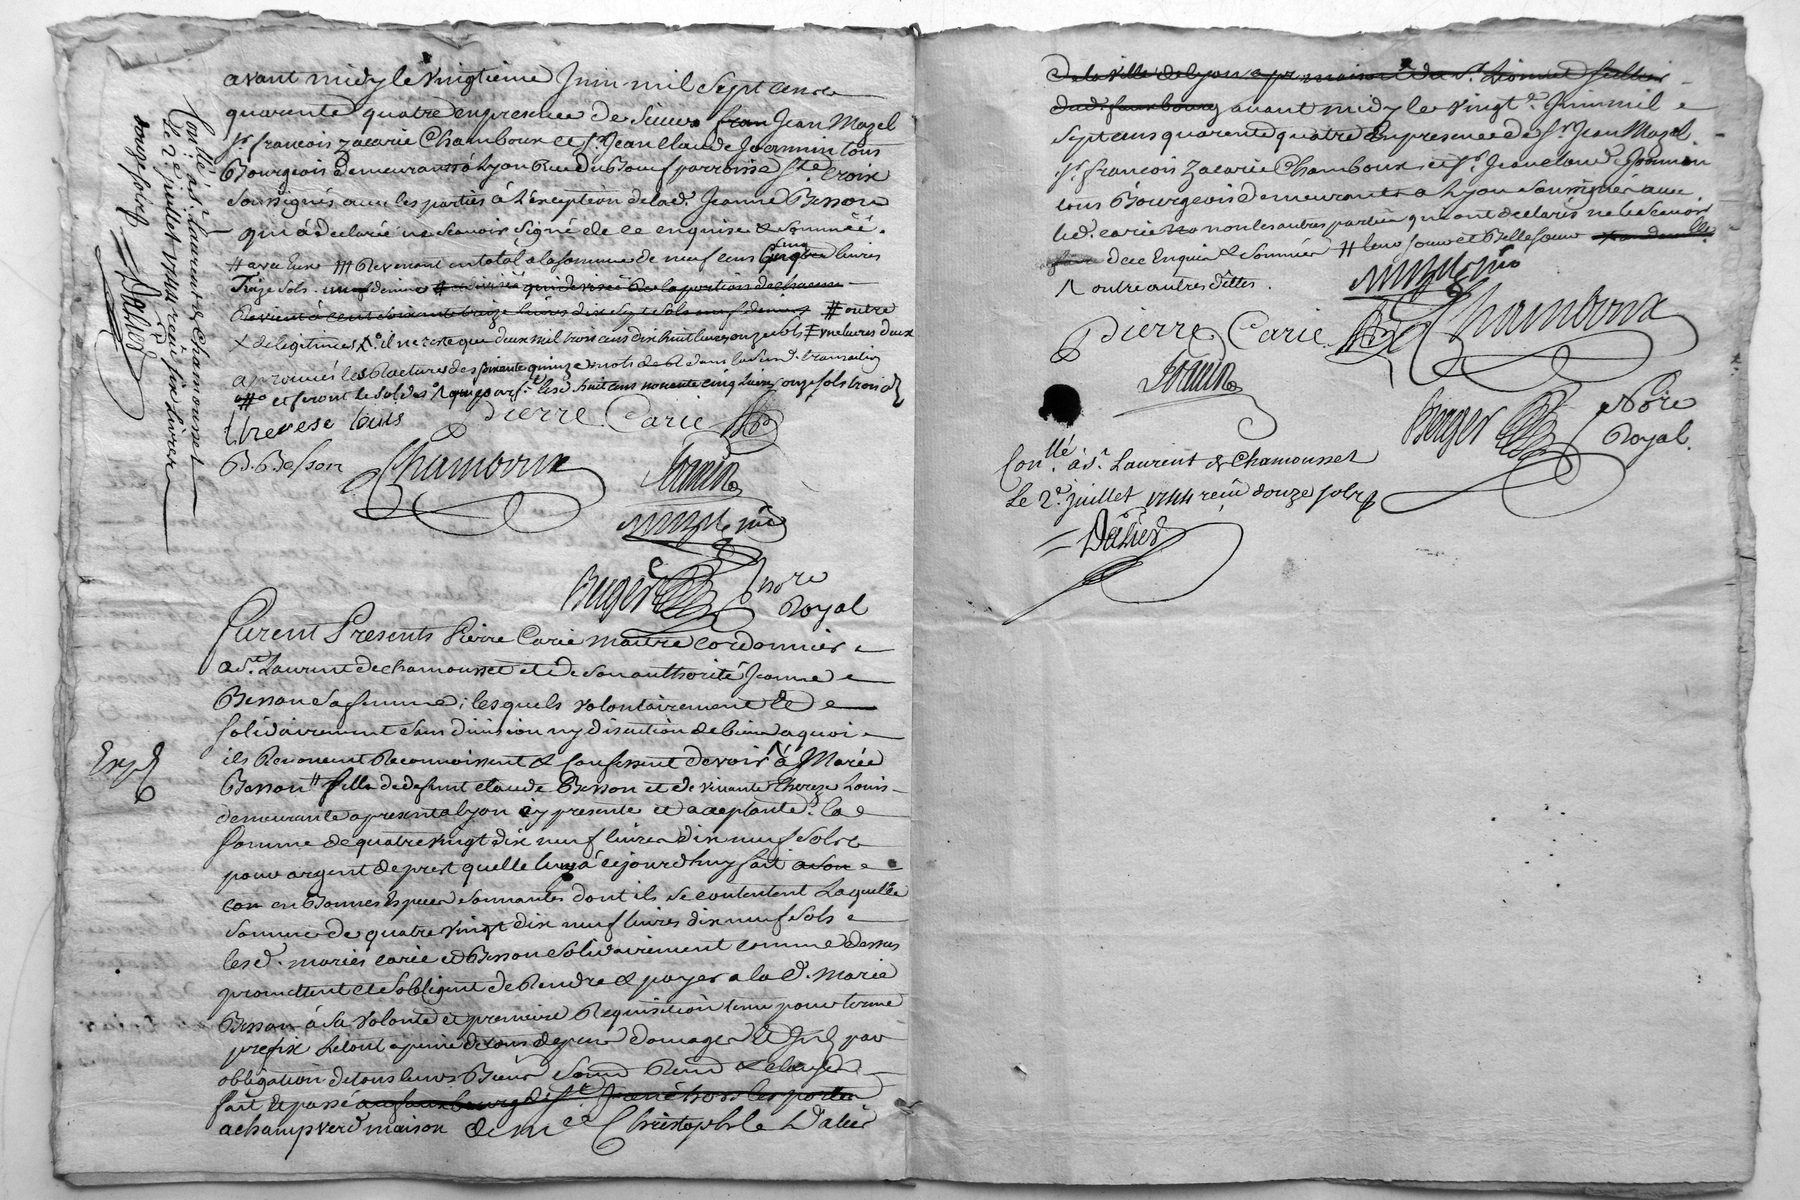 avant midy le vingtieme Juin mil sept cents
quarente quatre en presence de sieurs fran Jean Mazel
Sr. francois Zacarie Chamboux et Sr. Jean Claude Joannin tous
Bourgeois demeurants à Lyon Rue du Boeuf parroisse Ste. Croix
soussignés avec les parties à l'exeption de lad. Jeanne Besson
qui à declarée ne scavoir signé de ce enquise & sommée.
# avec eux ### Revenant en total a la somme de neuf cens cinq livres
Treize sols neuf deniers
Revient à cent soixante treize livres dix sept sols neuf deniers # outre
il ne reste que deux mil trois cens dix huit livres onze sols
approuvés les ratures des quinze mots
huit cens nonente cinq livres onze sols trois d
therese louis
Pierre Carie
B. Besson
Chamboux
Joanin
Mazel
Berger
Nore
Royal
Conllé à St. Laurent de Chamousset
le 2e juillet 1744 receu six livres
douze sols
Dalier
Furent Presents Pierre Carie maitre cordonnier
a St. Laurent de chamousset et de son authorité Jeanne
Besson sa femme; lesquels volontairement et
solidairement sans division ny discution de biens a quoi
ils Renoncent Reconnoissent & confessent devoir à Marie
Besson # fille de defunt claude Besson et de vivante Therese Louis
demeurante a present a Lyon cy presente et acceptante. la
somme de quatre vingt dix neuf livres dix neuf sols
pour argent de prest quelle leur à cejourdhuy fait a son
con en Bonnes especes sonnantes dont ils se contentent Laquelle
somme de quatre vingt dix neuf livres dix neuf sols
lesd. mariés carie et Besson solidairement comme dessus
promettent et sobligent de Rendre & payer a la d. Marie
Besson à sa volonté et premiere Requisition tenu pour terme
prefix Le tout a peine de tous depens domages & Int par
obligation de tous leurs Biens soum Renn & clauses
fait et passé au faux bourg de St. Irené hors les portes
a champ verd maison de me Christophle Dalier
Exp
de la ville de Lyon
dud. fauxbourg avant midy le vingte. Juin mil
sept cens quarente quatre En presence de Sr. Jean Mazel.
Sr. francois Zacarie Chamboux et Sr. Jean Claude Joannin
tous Bourgeois demeurants a Lyon soussignés avec
led. carie non les autres parties qui ont declarés ne le scavoir
de ce Enquis & sommés # leur soeur et Belle soeur
outre autres dettes.
Mazel
Pierre Carie
Chamboux
Joanin
Berger
Nore
Royal.
Conllé. à St. Laurent de Chamousset
Le 2e. juillet 1744 receu douze sols
Dalier